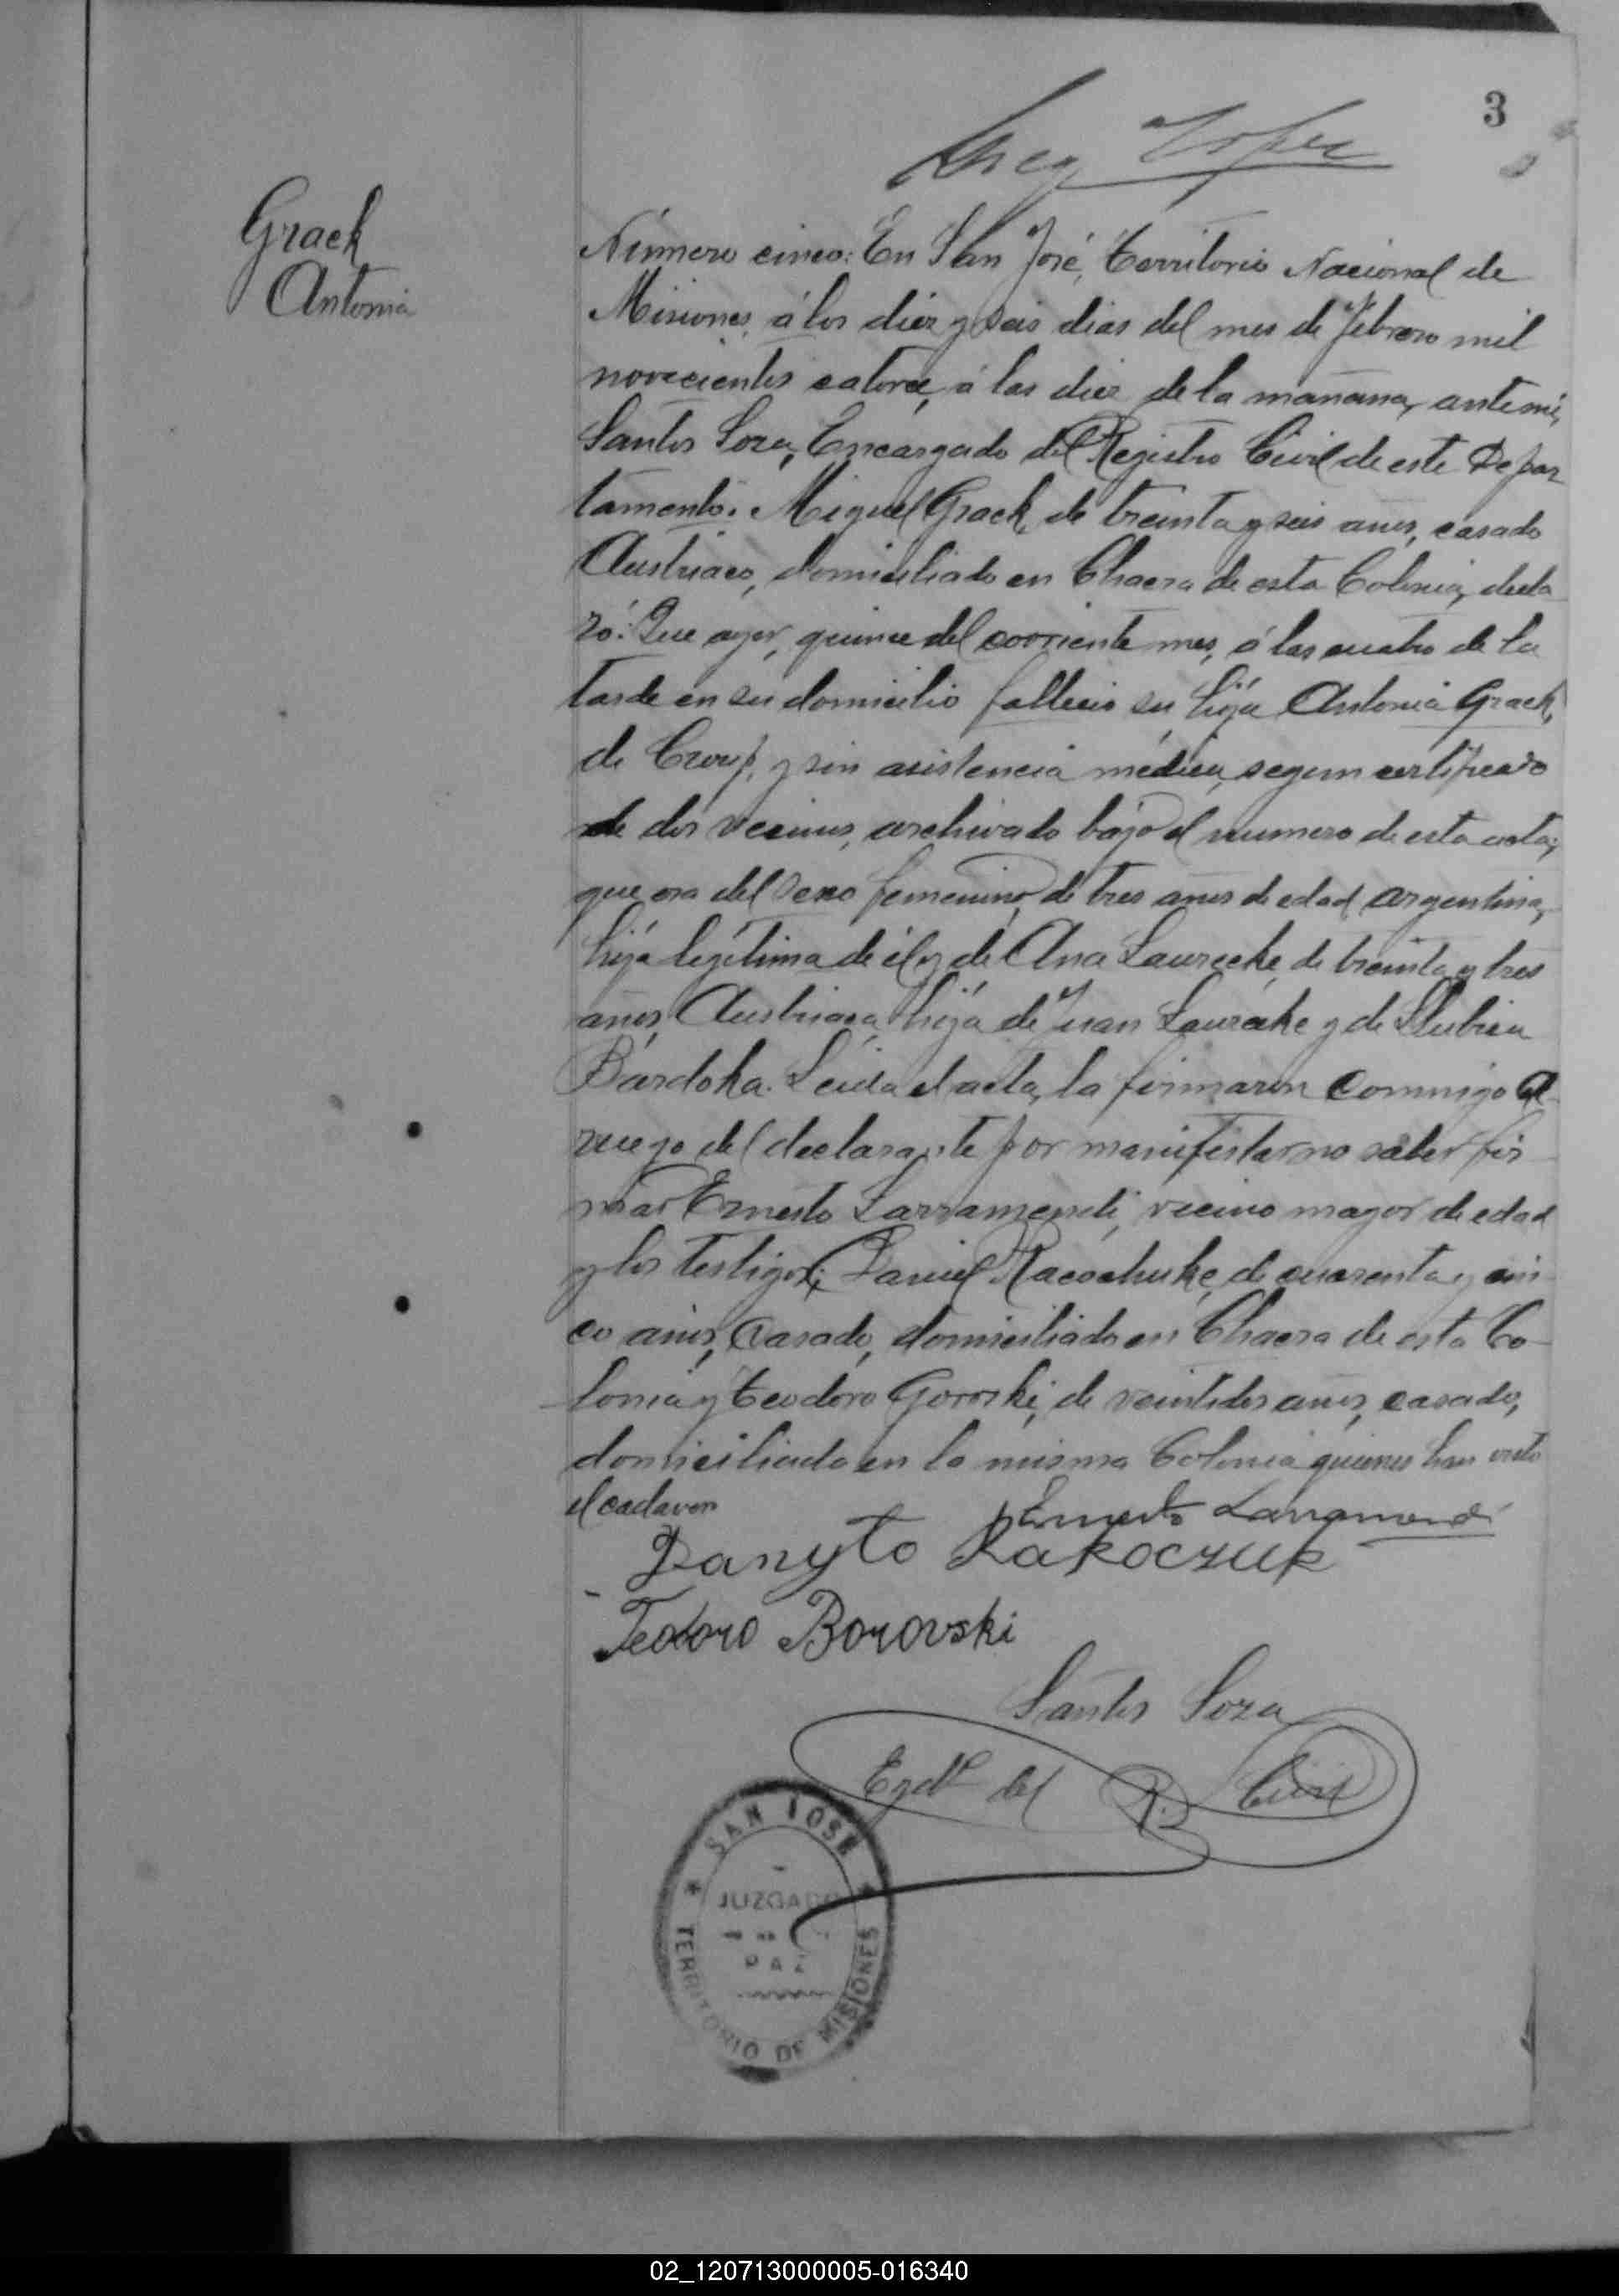 3
Grack
Antonia
Número cinco: En San José, Territorio Nacional de
Misiones, á los diez y seis dias del mes de Febrero mil
novecientos catorce, á las diez de la mañana, ante mi,
Santos Soza, Encargado del Registro Civil de este Depar
tamento. Miguel Grack, de treinta y seis años, casado
Austriaco, domiciliado en Chacra de esta Colonia, decla
ró: Que ayer, quince del corriente mes, á las cuatro de la
tarde en su domicilio fallecio su hija Antonia Grack,
de Croup, y sin asistencia médica, segun certificado
de dos vecinos, archivado bajo el numero de esta acta;
que era del sexo femenino, de tres años de edad, argentina,
hija legítima de él y de Ana Laurecke, de treinta y tres
años, Austriaca, hija de Juan Laurake y de Llubica
Bardoka. Leida el acta, la firmaron conmigo a
ruego del declarante por manifestar no saber fir
mar Ernesto Larramendi, vecino mayor de edad
y los testigos; Daniel Racochuke, de cuarenta y cin
co años, casado, domiciliado en Chacra de esta Co-
lonia y Teodoro Goroski, de veintidos años, casado,
domiciliado en la misma Colonia quienes han visto
el cadaver
Ernesto Larramendi
Danyło Rakoczuk
Teodoro Borovski
Santos Soza
Egdo del R. Civil
SAN JOSE
JUZGADO
DE
PAZ
TERRITORIO DE MISIONES
02_120713000005-016340